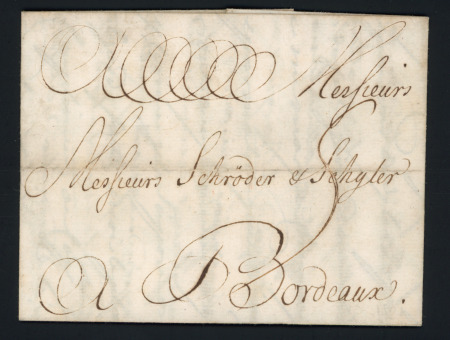 A Messieurs
Messieurs Schröder & Schyler
A Bordeaux.